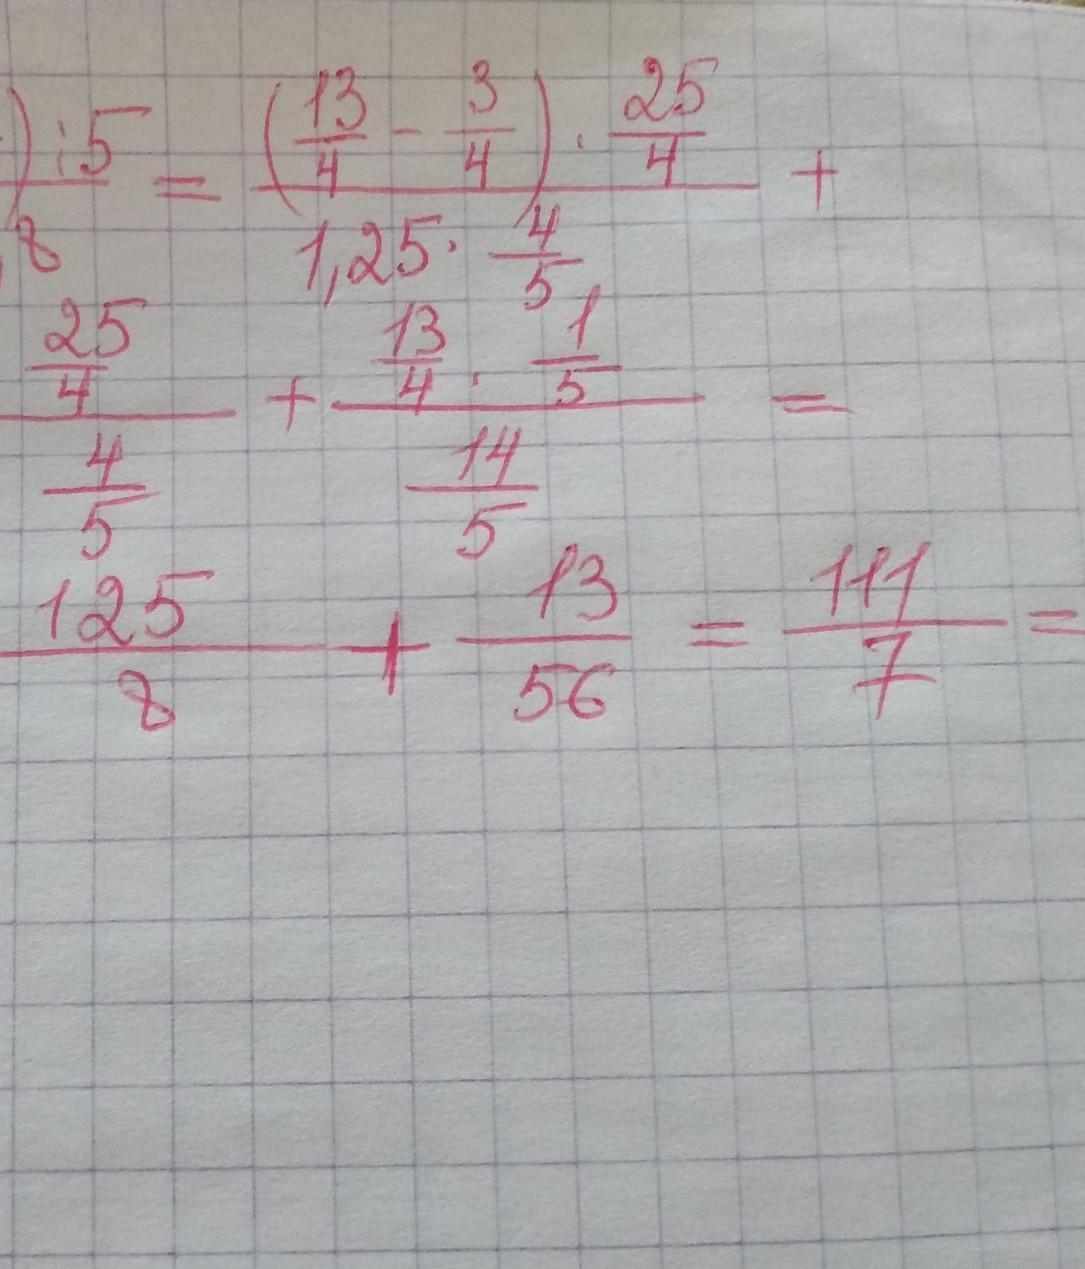 ) : 5 = (13/4 - 3/4) · 25/4 +
,8 1,25 · 4/5
25/4 + 13/4 · 1/5 =
4/5 14/5
125/8 + 13/56 = 111/7 =